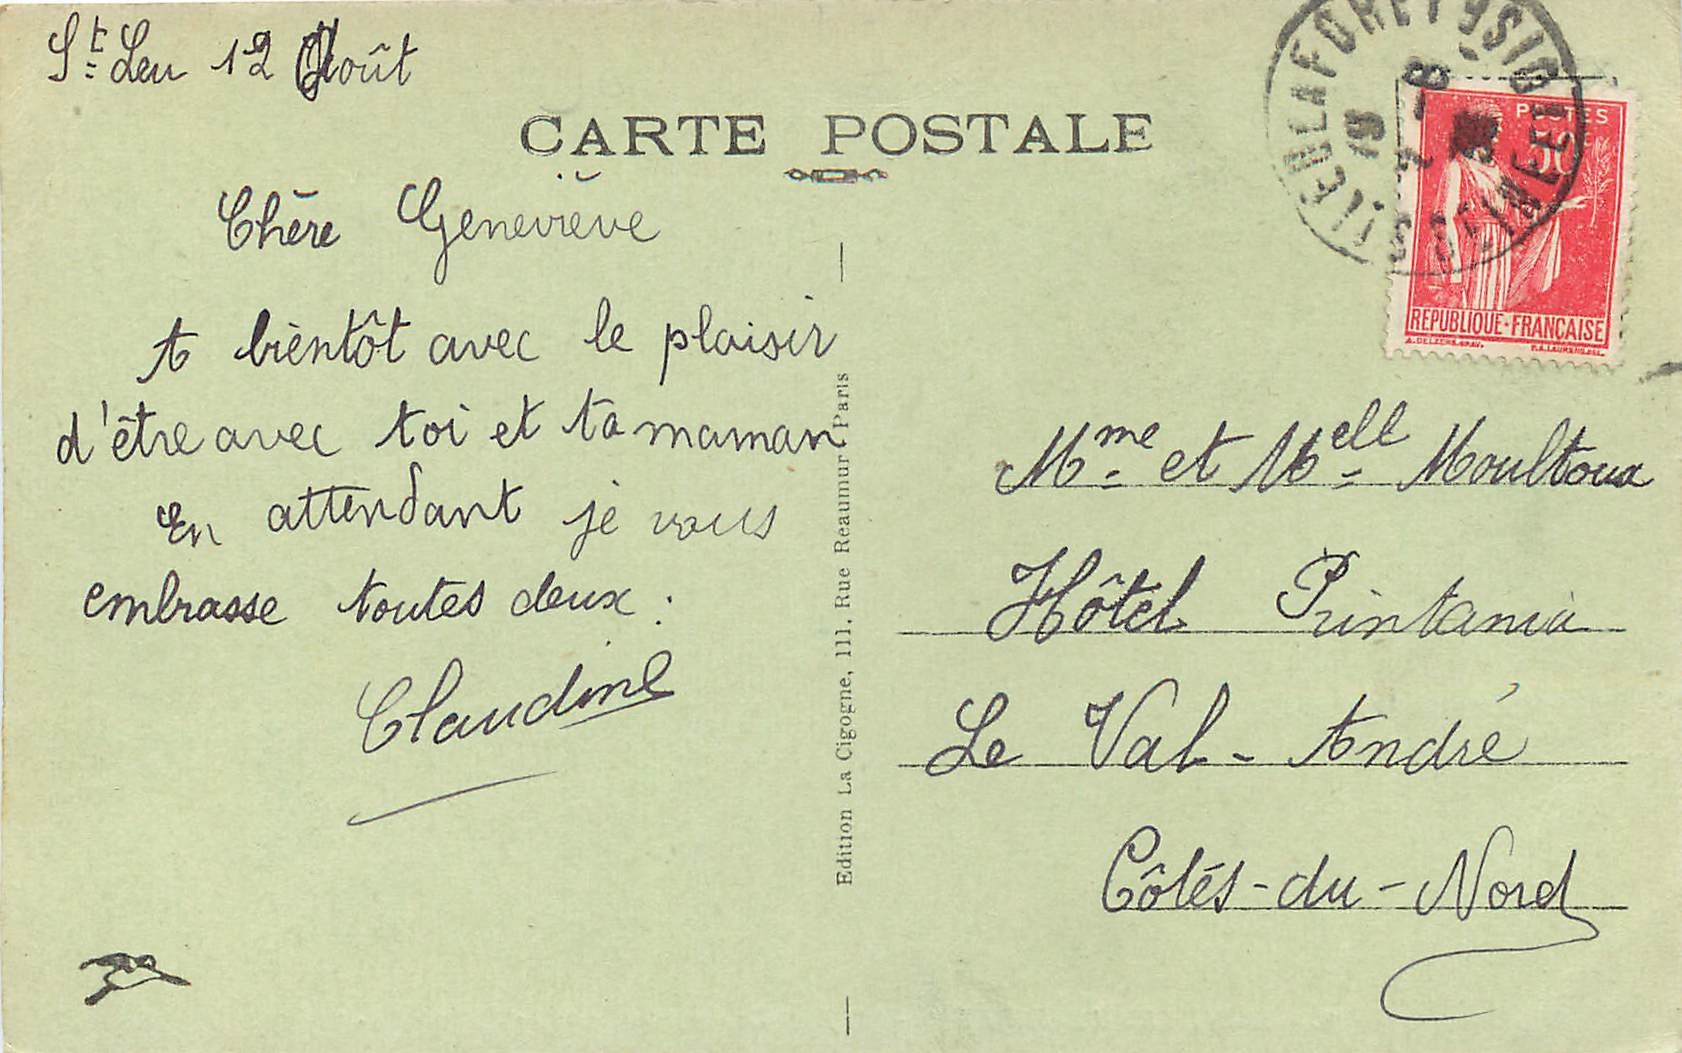 St Leu 12 Août
CARTE POSTALE
Chère Geneviève
A bientôt avec le plaisir
d'être avec toi et ta maman
En attendant je vous
embrasse toutes deux :
Claudine
Edition La Cigogne, 111, Rue Reaumur Paris
POSTES
50
REPUBLIQUE·FRANÇAISE
Mme et Melle Moultoux
Hôtel Printania
Le Val-André
Côtés-du-Nord